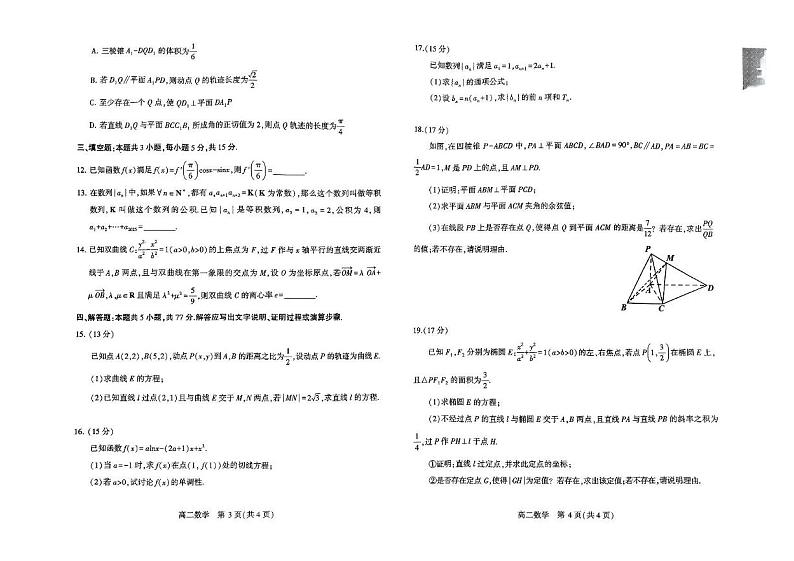 A. 三棱锥 A₁-DQD₁ 的体积为 1/6
B. 若 D₁Q∥平面 A₁PD,则动点 Q 的轨迹长度为 √2/2
C. 至少存在一个 Q 点,使 QD₁⊥平面 DA₁P
D. 若直线 D₁Q 与平面 BCC₁B₁ 所成角的正切值为 2,则点 Q 轨迹的长度为 π/4
三、填空题:本题共 3 小题,每小题 5 分,共 15 分.
12. 已知函数 f(x)满足 f(x)=f′(π/6)cosx-sinx,则 f′(π/6)=________.
13. 在数列{aₙ}中,如果 ∀n∈N*,都有 aₙaₙ₊₁aₙ₊₂=K(K 为常数),那么这个数列叫做等积
数列,K 叫做这个数列的公积.已知{aₙ}是等积数列,a₂=1,a₃=2,公积为 4,则
a₁+a₂+⋯+a₂₀₂₅=________.
14. 已知双曲线 C:y²/a²-x²/b²=1(a>0,b>0)的上焦点为 F,过 F 作与 x 轴平行的直线交两渐近
线于 A,B 两点,且与双曲线在第一象限的交点为 M,设 O 为坐标原点,若 OM→=λ OA→+
μ OB→,λ,μ∈R 且满足 λ²+μ²=5/9,则双曲线 C 的离心率 e=________.
四、解答题:本题共 5 小题,共 77 分.解答应写出文字说明、证明过程或演算步骤.
15. (13 分)
已知点 A(2,2),B(5,2),动点 P(x,y)到 A,B 的距离之比为 1/2,设动点 P 的轨迹为曲线 E.
(1)求曲线 E 的方程;
(2)已知直线 l 过点(2,1)且与曲线 E 交于 M,N 两点,若 |MN|=2√3,求直线 l 的方程.
16. (15 分)
已知函数 f(x)=alnx-(2a+1)x+x².
(1)当 a=-1 时,求 f(x)在点(1, f(1))处的切线方程;
(2)若 a>0,试讨论 f(x)的单调性.
高二数学 第 3 页(共 4 页)
17. (15 分)
已知数列{aₙ}满足 a₁=1,aₙ₊₁=2aₙ+1.
(1)求{aₙ}的通项公式;
(2)设 bₙ=n(aₙ+1),求{bₙ}的前 n 项和 Tₙ.
18. (17 分)
如图,在四棱锥 P-ABCD 中,PA⊥平面 ABCD, ∠BAD=90°,BC∥AD,PA=AB=BC=
1/2 AD=1,M 是 PD 上的点,且 AM⊥PD.
(1)证明:平面 ABM⊥平面 PCD;
(2)求平面 ABM 与平面 ACM 夹角的余弦值;
(3)在线段 PB 上是否存在点 Q,使得点 Q 到平面 ACM 的距离是 7/12?若存在,求出 PQ/QB
的值;若不存在,请说明理由.
P
M
A
D
B
C
19. (17 分)
已知 F₁,F₂ 分别为椭圆 E:x²/a²+y²/b²=1(a>b>0)的左、右焦点,若点 P(1,3/2)在椭圆 E 上,
且△PF₁F₂ 的面积为 3/2.
(1)求椭圆 E 的方程;
(2)不经过点 P 的直线 l 与椭圆 E 交于 A,B 两点,且直线 PA 与直线 PB 的斜率之积为
1/4,过 P 作 PH⊥l 于点 H.
①证明:直线 l 过定点,并求此定点的坐标;
②是否存在定点 G,使得|GH|为定值?若存在,求出该定值;若不存在,请说明理由.
高二数学 第 4 页(共 4 页)